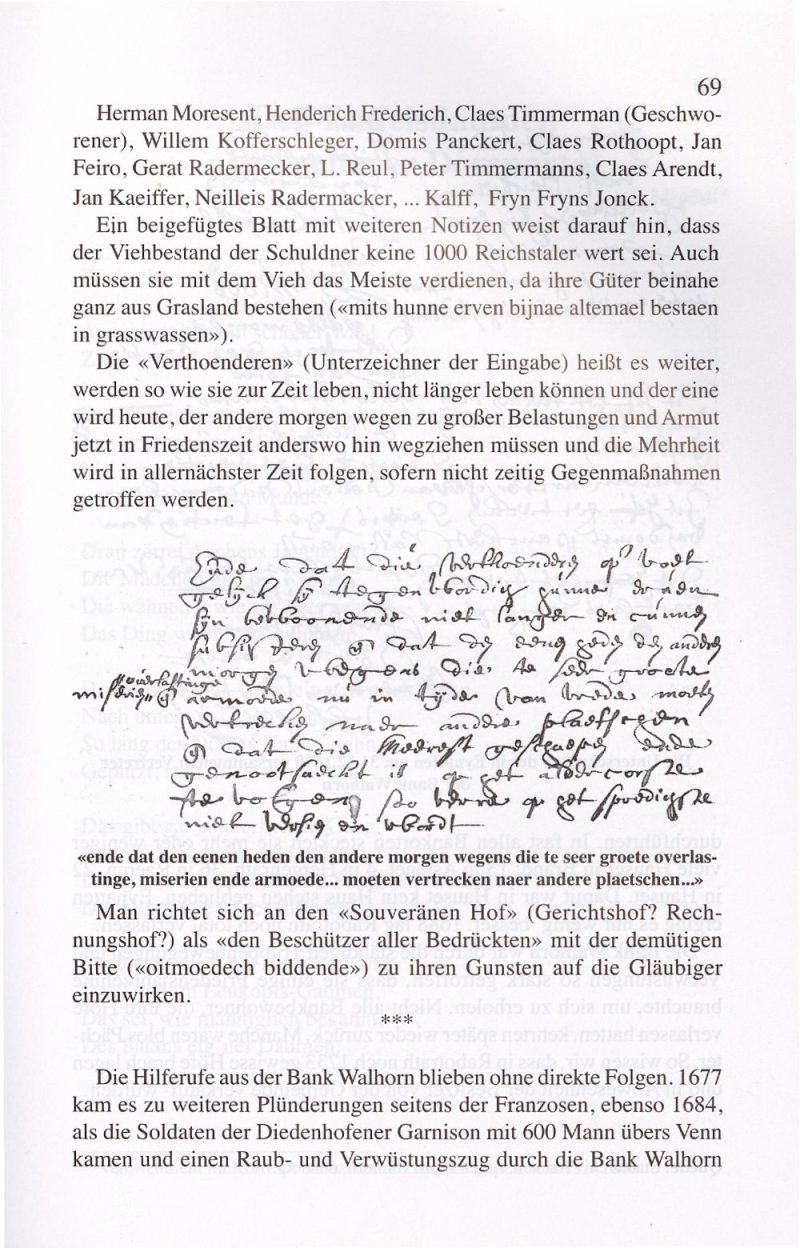 69
Herman Moresent, Henderich Frederich, Claes Timmerman (Geschwo-
rener), Willem Kofferschleger, Domis Panckert, Claes Rothoopt, Jan
Feiro, Gerat Radermecker, L. Reul, Peter Timmermanns, Claes Arendt,
Jan Kaeiffer, Neilleis Radermacker, ... Kalff, Fryn Fryns Jonck.
Ein beigefügtes Blatt mit weiteren Notizen weist darauf hin, dass
der Viehbestand der Schuldner keine 1000 Reichstaler wert sei. Auch
müssen sie mit dem Vieh das Meiste verdienen, da ihre Güter beinahe
ganz aus Grasland bestehen («mits hunne erven bijnae altemael bestaen
in grasswassen»).
Die «Verthoenderen» (Unterzeichner der Eingabe) heißt es weiter,
werden so wie sie zur Zeit leben, nicht länger leben können und der eine
wird heute, der andere morgen wegen zu großer Belastungen und Armut
jetzt in Friedenszeit anderswo hin wegziehen müssen und die Mehrheit
wird in allernächster Zeit folgen, sofern nicht zeitig Gegenmaßnahmen
getroffen werden.
Ende dat die verthoenderen op voet
gelyck sy tegenwoordich
niet langer en cunnen
subsisteren dat den eenen heden den anderen
morgen wegens die te seer groete
overlastinge
miserien armoede nu in tyde van vrede moeten
vertrecken naer andere plaetschen
dat die meerest ende
genootsaeckt is op het alder corste
te volgen soo verre op het spoedichste
niet versien en wordt
«ende dat den eenen heden den andere morgen wegens die te seer groete overlas-
tinge, miserien ende armoede... moeten vertrecken naer andere plaetschen...»
Man richtet sich an den «Souveränen Hof» (Gerichtshof? Rech-
nungshof?) als «den Beschützer aller Bedrückten» mit der demütigen
Bitte («oitmoedech biddende») zu ihren Gunsten auf die Gläubiger
einzuwirken.
***
Die Hilferufe aus der Bank Walhorn blieben ohne direkte Folgen. 1677
kam es zu weiteren Plünderungen seitens der Franzosen, ebenso 1684,
als die Soldaten der Diedenhofener Garnison mit 600 Mann übers Venn
kamen und einen Raub- und Verwüstungszug durch die Bank Walhorn